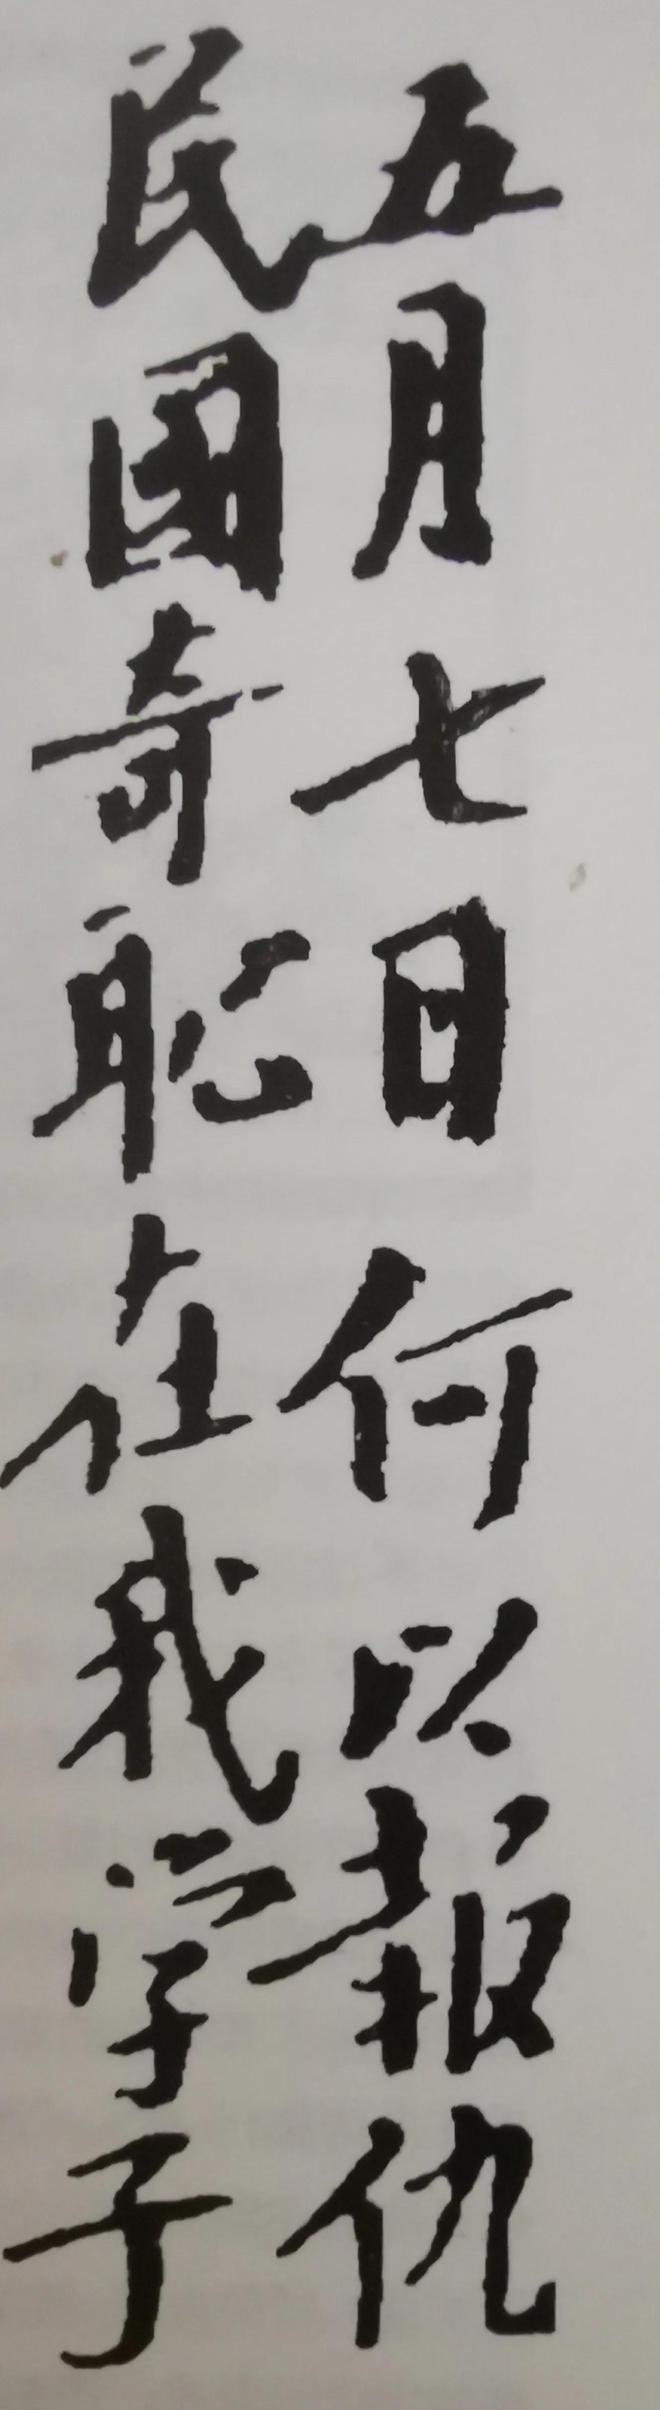 五月七日 何以報仇
民國奇恥 在我学子